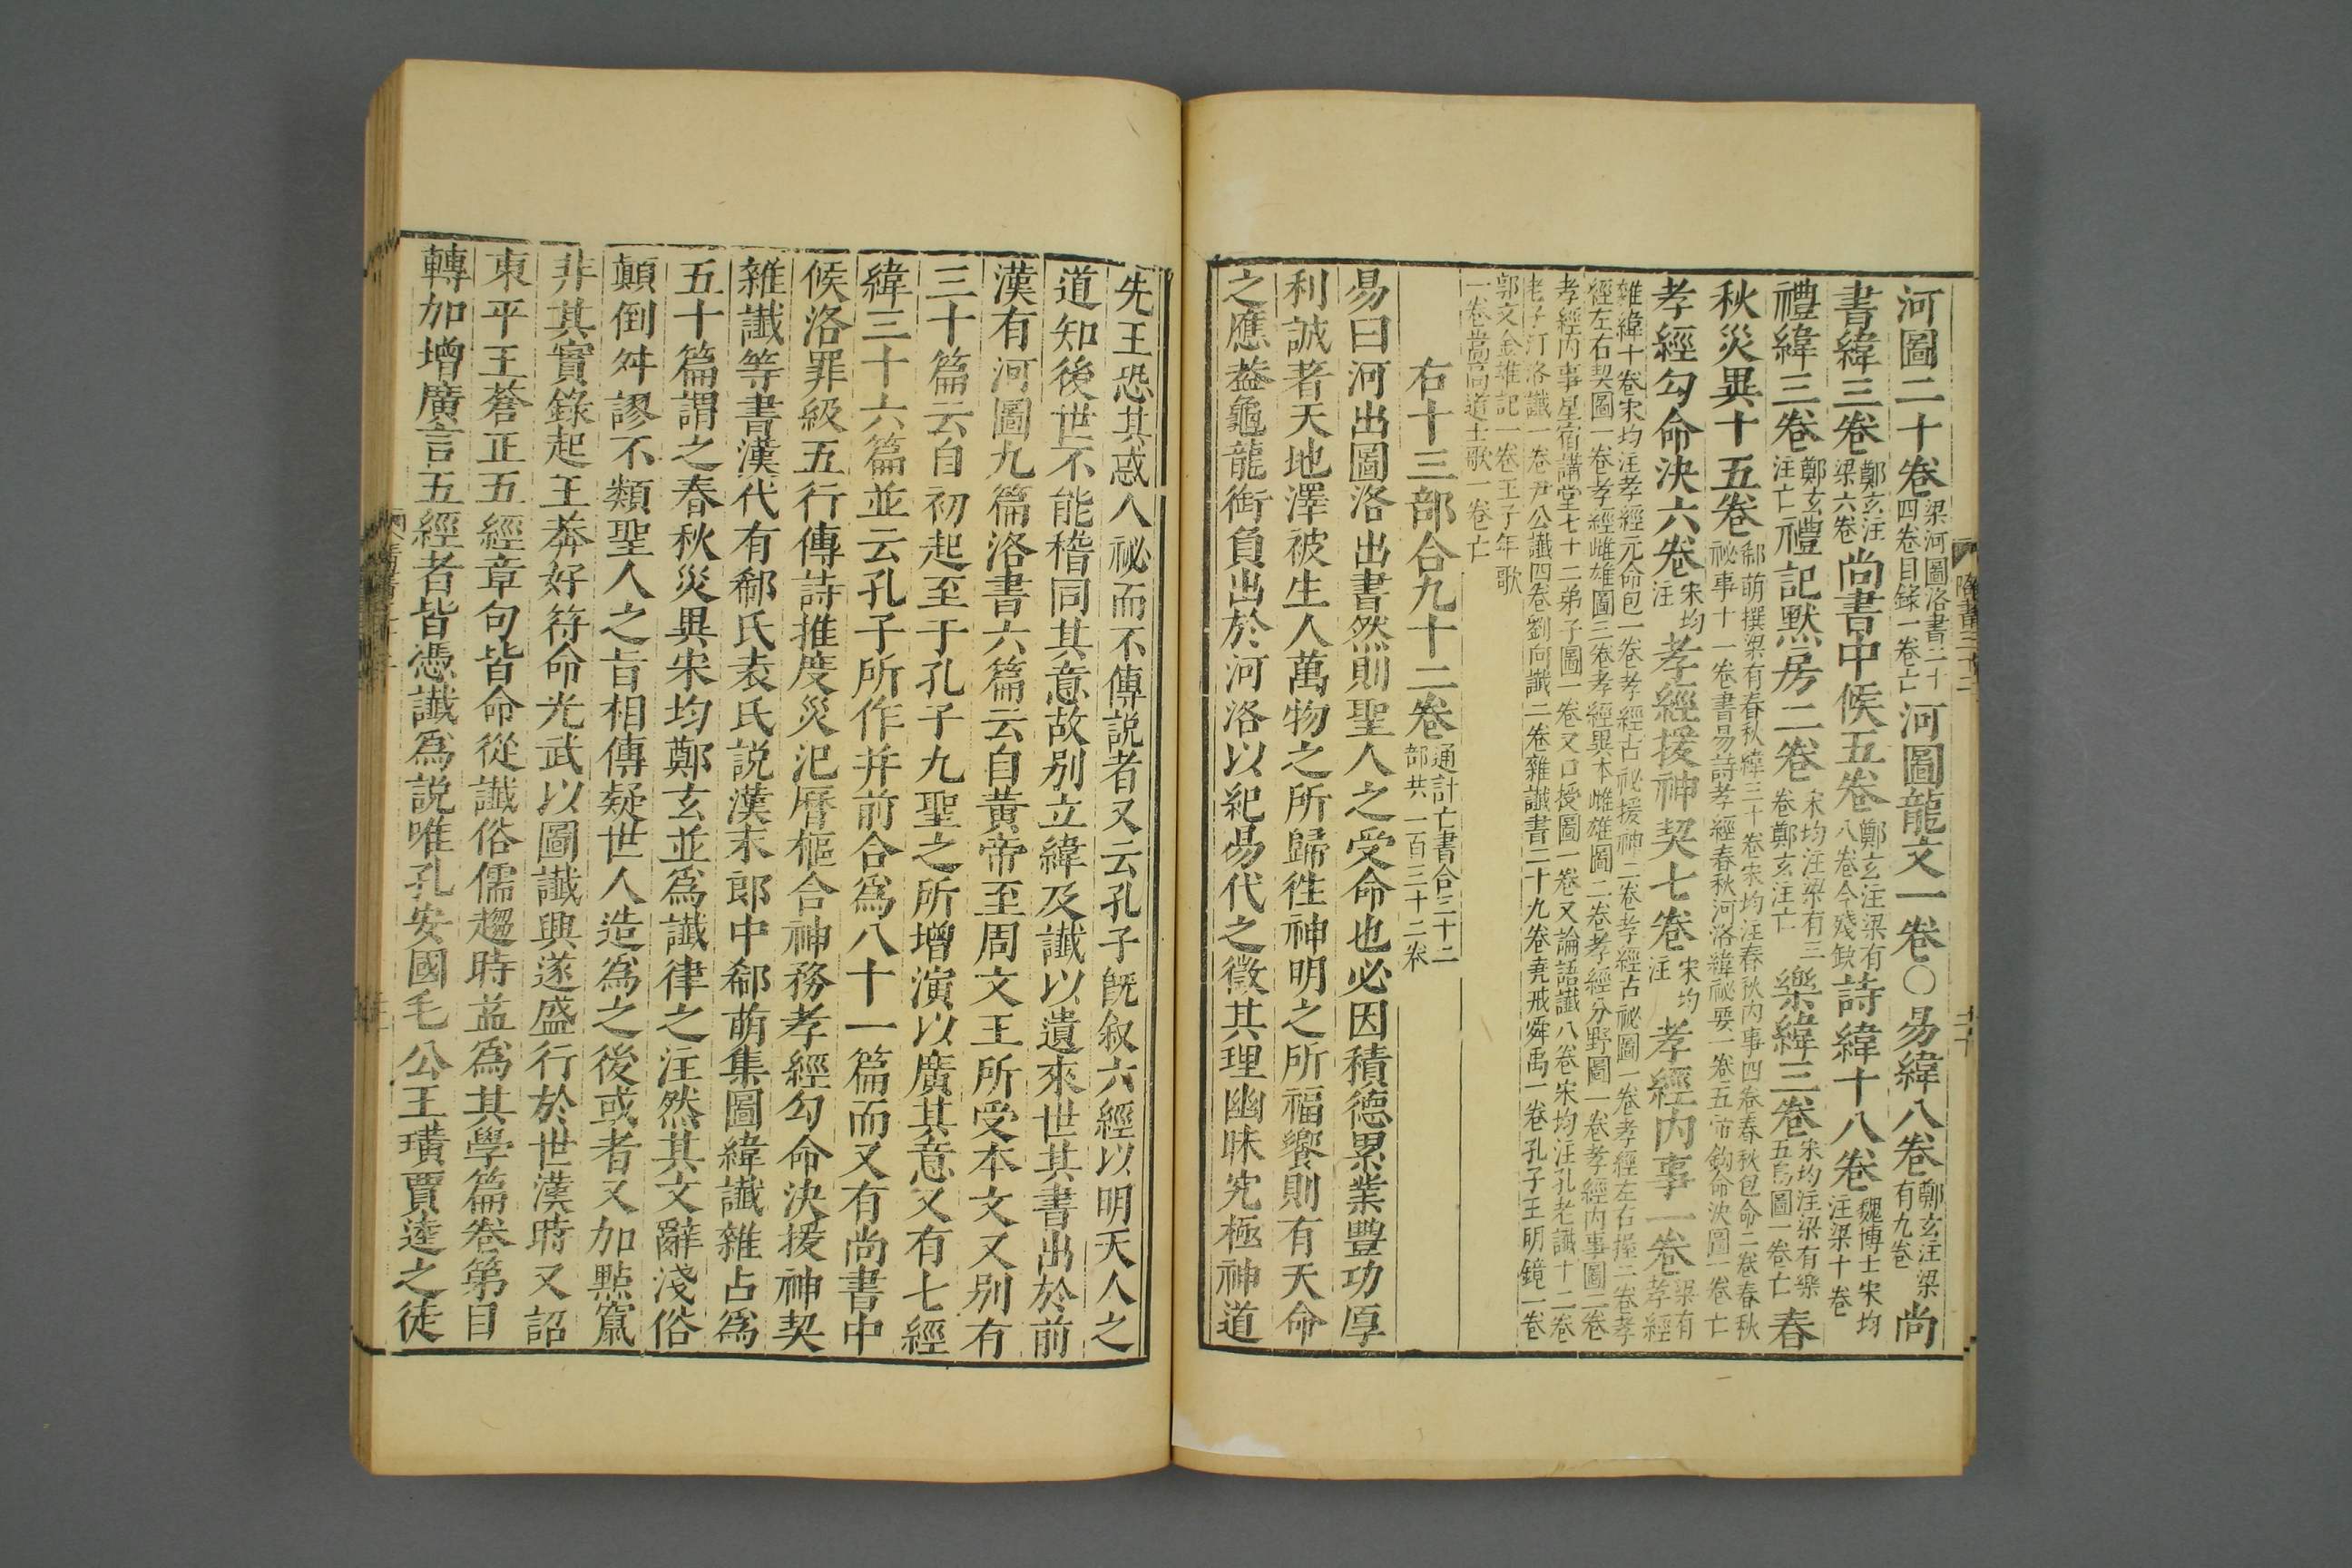 河圖二十卷梁河圖洛書二十四卷目錄一卷亡河圖龍文一卷○易緯八卷鄭玄注梁有九卷尚
書緯三卷鄭玄注梁六卷尚書中候五卷鄭玄注梁有八卷今殘缺詩緯十八卷魏博士宋均注梁十卷
禮緯三卷鄭玄注亡禮記默房二卷宋均注梁有三卷鄭玄注亡樂緯三卷宋均注梁有樂五鳥圖一卷亡春
秋災異十五卷郗萌撰梁有春秋緯三十卷宋均注春秋內事四卷春秋包命二卷春秋祕事十一卷書易詩孝經春秋河洛緯祕要一卷五帝鉤命決圖一卷亡
孝經勾命決六卷宋均注孝經援神契七卷宋均注孝經內事一卷梁有孝經
雜緯十卷宋均注孝經元命包一卷孝經古祕援神二卷孝經古祕圖一卷孝經左右握二卷孝
經左右契圖一卷孝經雌雄圖三卷孝經異本雌雄圖二卷孝經分野圖一卷孝經內事圖二卷
孝經內事星宿講堂七十二弟子圖一卷又口授圖一卷又論語讖八卷宋均注孔老讖十二卷
老子河洛讖一卷尹公讖四卷劉向讖二卷雜讖書二十九卷堯戒舜禹一卷孔子王明鏡一卷
郭文金雄記一卷王子年歌
一卷嵩高道士歌一卷亡
右十三部合九十二卷通計亡書合三十二部共二百三十二卷
易曰河出圖洛出書然則聖人之受命也必因積德累業豐功厚
利誠著天地澤被生人萬物之所歸徃神明之所福饗則有天命
之應蓋龜龍銜負出於河洛以紀易代之徵其理幽昧究極神道
先王恐其惑人祕而不傳説者又云孔子旣敘六經以明天人之
道知後世不能稽同其意故别立緯及讖以遺來世其書出於前
漢有河圖九篇洛書六篇云自黄帝至周文王所受本文又别有
三十篇云自初起至于孔子九聖之所增演以廣其意又有七經
緯三十六篇並云孔子所作并前合爲八十一篇而又有尚書中
候洛罪級五行傳詩推度災汜曆樞含神務孝經勾命決援神契
雜讖等書漢代有郗氏袁氏説漢末郎中郗萌集圖緯讖雜占爲
五十篇謂之春秋災異宋均鄭玄並爲讖律之注然其文辭淺俗
顛倒舛謬不類聖人之旨相傳疑世人造爲之後或者又加點竄
非其實錄起王莽好符命光武以圖讖興遂盛行於世漢時又詔
東平王蒼正五經章句皆命從讖俗儒趨時益爲其學篇卷第目
轉加增廣言五經者皆憑讖爲説唯孔安國毛公王璜賈逵之徒